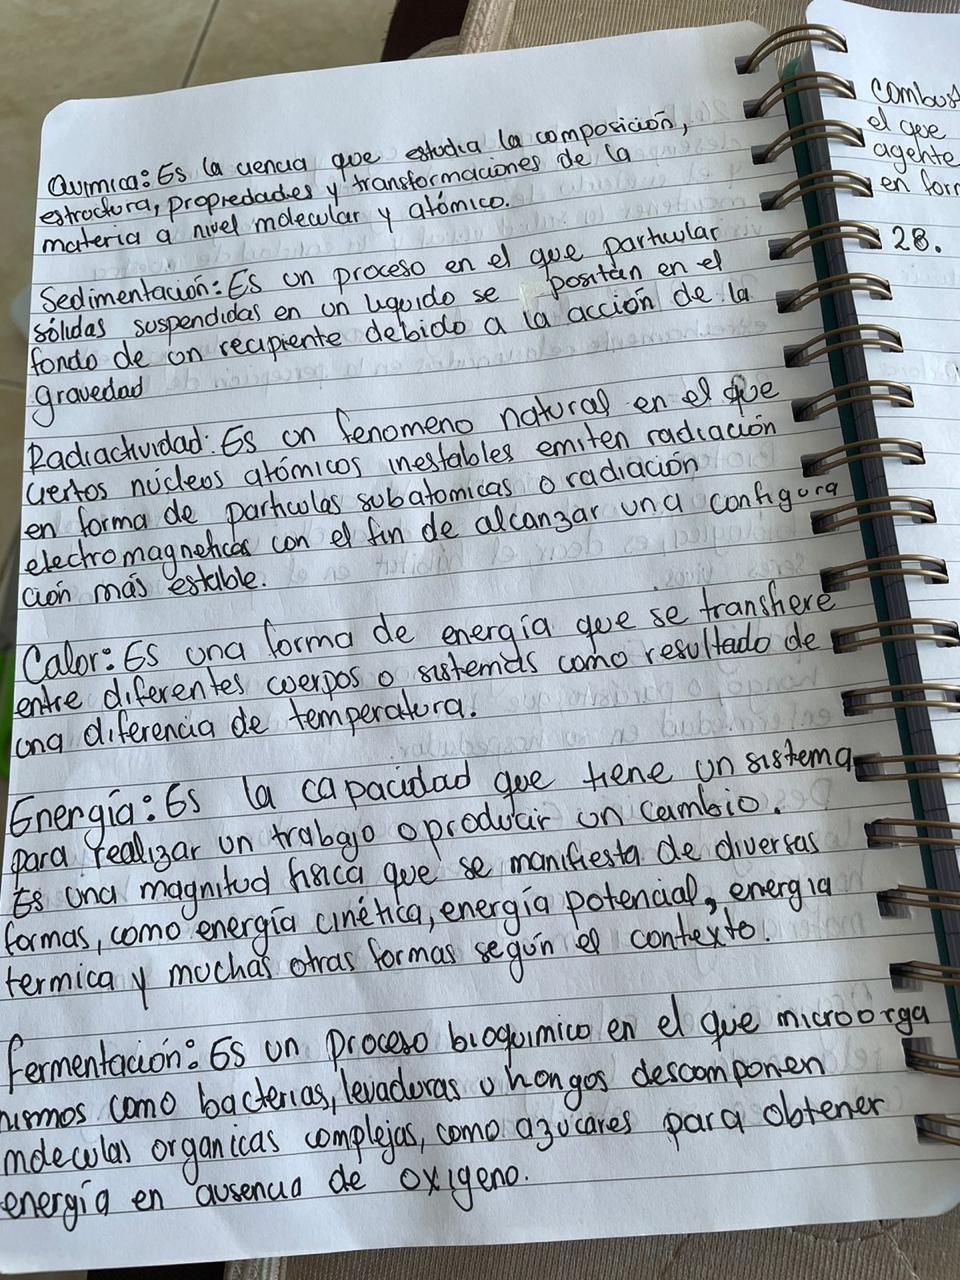 Quimica: Es la ciencia que estudia la composición,
estructura, propiedades y transformaciones de la
materia a nivel molecular y atómico.
Sedimentación: Es un proceso en el que particular
sólidas suspendidas en un liquido se positan en el
fondo de un recipiente debido a la acción de la
gravedad
Radiactividad: Es un fenomeno natural en el que
ciertos núcleos atómicos inestables emiten radiación
en forma de particulas subatomicas o radiación
electromagneticas con el fin de alcanzar una configura
ción más estable.
Calor: Es una forma de energía que se transfiere
entre diferentes cuerpos o sistemas como resultado de
una diferencia de temperatura.
Energía: Es la capacidad que tiene un sistema
para realizar un trabajo o producir un cambio.
Es una magnitud fisica que se manifiesta de diversas
formas, como energía cinética, energía potencial, energia
termica y muchas otras formas según el contexto.
Fermentación: Es un proceso bioquimico en el que microorga
nismos como bacterias, levaduras u hongos descomponen
moleculas organicas complejas, como azúcares para obtener
energía en ausencia de oxigeno.
combust
el que
agente
en form
28.